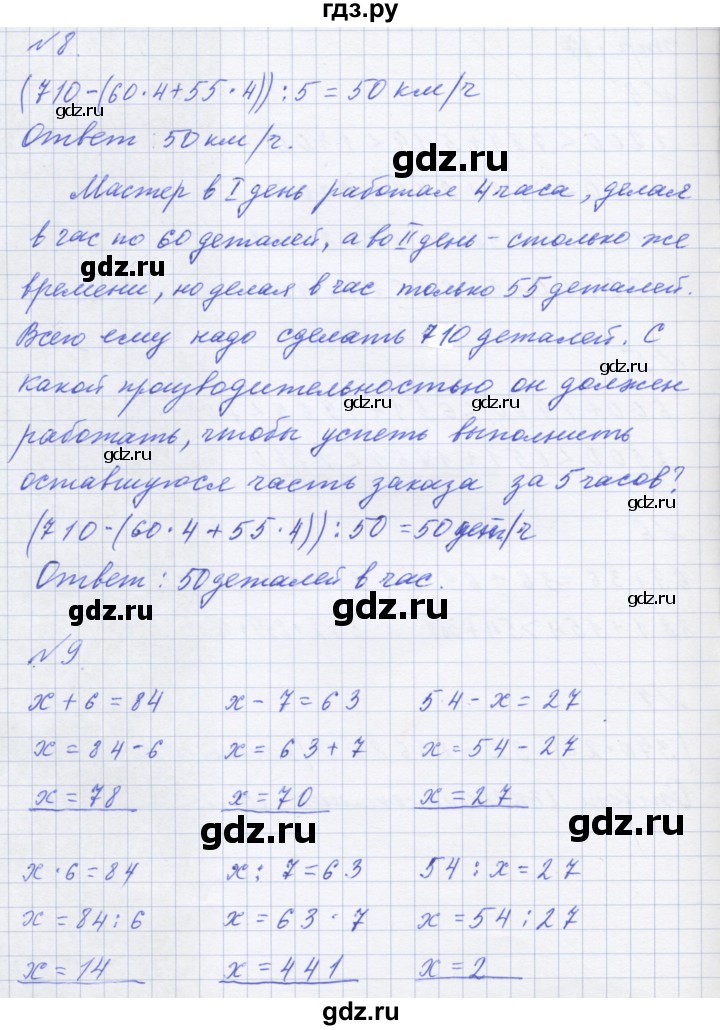 гдз.ру
№8.
(710-(60·4+55·4)):5=50км/ч
gdz.ru
gdz.ru
Ответ 50км/ч.
gdz.ru
Мастер в I день работал 4часа, делая
в час по 60деталей, а во II день - столько же
gdz.ru
времени, но делая в час только 55деталей.
Всего ему надо сделать 710 деталей. С
gdz.ru
какой производительностью он должен
gdz.ru
gdz.ru
работать, чтобы успеть выполнить
оставшуюся часть заказа за 5часов?
gdz.ru
(710-(60·4+55·4)):50=50дет/ч
Ответ: 50деталей в час.
gdz.ru
gdz.ru
gdz.ru
№9.
x+6=84 x-7=63 54-x=27
x=84-6 x=63+7 x=54-27
x=78 x=70 x=27
gdz.ru
gdz.ru
x·6=84 x:7=63 54:x=27
x=84:6 x=63·7 x=54:27
x=14 x=441 x=2
gdz.ru